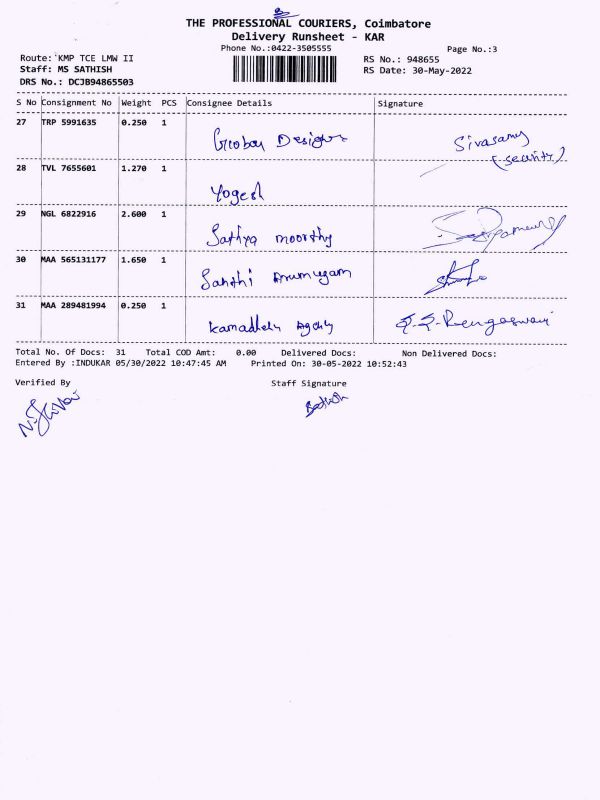 3
THE PROFESSIONAL COURIERS, Coimbatore
Delivery Runsheet - KAR
Phone No.:0422-3505555
Page No.:3
Route: KMP TCE LMW II
RS No.: 948655
Staff: MS SATHISH
RS Date: 30-May-2022
DRS No.: DCJB94865503
S No Consignment No Weight PCS Consignee Details Signature
27 TRP 5991635 0.250 1 Designs Sivasamy
(security)
28 TVL 7655601 1.270 1 Yogesh
29 NGL 6822916 2.600 1 Sathya moorthy
30 MAA 565131177 1.650 1 Santhi Arumugam
31 MAA 289481994 0.250 1 Kamadhelu Agency Rengaswami
Total No. Of Docs: 31 Total COD Amt: 0.00 Delivered Docs: Non Delivered Docs:
Entered By :INDUKAR 05/30/2022 10:47:45 AM Printed On: 30-05-2022 10:52:43
Verified By Staff Signature
Sathish